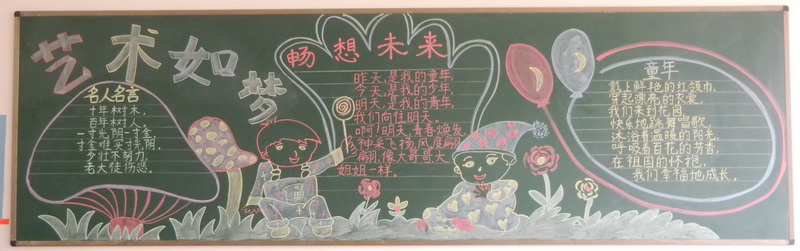 艺术如梦
名人名言
十年树木，
百年树人。
一寸光阴一寸金，
寸金难买寸光阴。
少壮不努力，
老大徒伤悲。
畅想未来
昨天，是我的童年，
今天，是我的少年，
明天，是我的青年，
我们向往明天。
啊！明天，青春焕发，
神采飞扬，风度翩
翩，像大哥哥大
姐姐一样。
童年
戴上鲜艳的红领巾，
穿起漂亮的衣裳，
我们来到花园，
快乐地跳舞唱歌。
沐浴着温暖的阳光，
呼吸着百花的芳香，
在祖国的怀抱，
我们幸福地成长。